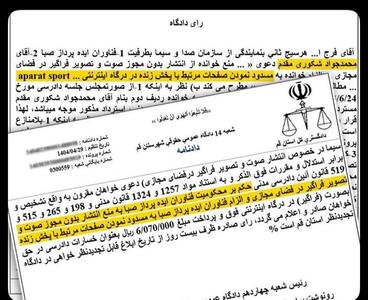 رای دادگاه
آقای فرج ا... هرسیج ثانی بنمایندگی از سازمان صدا و سیما بطرفیت 1-فناوران ایده پرداز صبا 2-آقای
محمدجواد شکوری مقدم دعوی « ... منع خوانده از انتشار بدون مجوز صوت و تصویر فراگیر در فضای
مجازی خوانده به مسدود نمودن صفحات مرتبط با پخش زنده در درگاه اینترنتی ... aparat sport
مطرح می کند نظر به اینکه 1-از صورتجلسه جلسه دادرسی مورخ
6/24/ خوانده ردیف دوم بنام آقای محمدجواد شکوری مقدم
استرداد مذکور موجه میباشد.
دادگستری کل استان قم
شعبه 14 دادگاه عمومی حقوقی شهرستان قم
دادنامه
شماره دادنامه :
تاریخ تنظیم : 1404/04/29
شماره پرونده :
شماره بایگانی شعبه : 0300559
سیما در خصوص انتشار صوت و تصویر فراگیر درفضای مجازی) دعوی خواهان مقرون به واقع تشخیص و
برابر استدلال و مقررات فوق الذکر و به استناد مواد 1257 و 1324 قانون مدنی و 198 و 265 و 515 و
519 قانون آئین دادرسی مدنی حکم بر محکومیت فناوران ایده پرداز صبا به منع انتشار بدون مجوز صوت و
تصویر فراگیر در فضای مجازی و الزام فناوران ایده پرداز صبا به مسدود نمودن صفحات مرتبط با پخش زنده
بصورت (فراگیر) در درگاه اینترنتی فوق و پرداخت مبلغ 6/070/000 ریال بعنوان خسارات دادرسی در حق
خواهان صادر و اعلام می گردد، رای صادره ظرف بیست روز از تاریخ ابلاغ قابل تجدیدنظر خواهی در دادگاه
تجدیدنظر استان قم است %
رئیس شعبه چهاردهم دادگاه
رونوشت